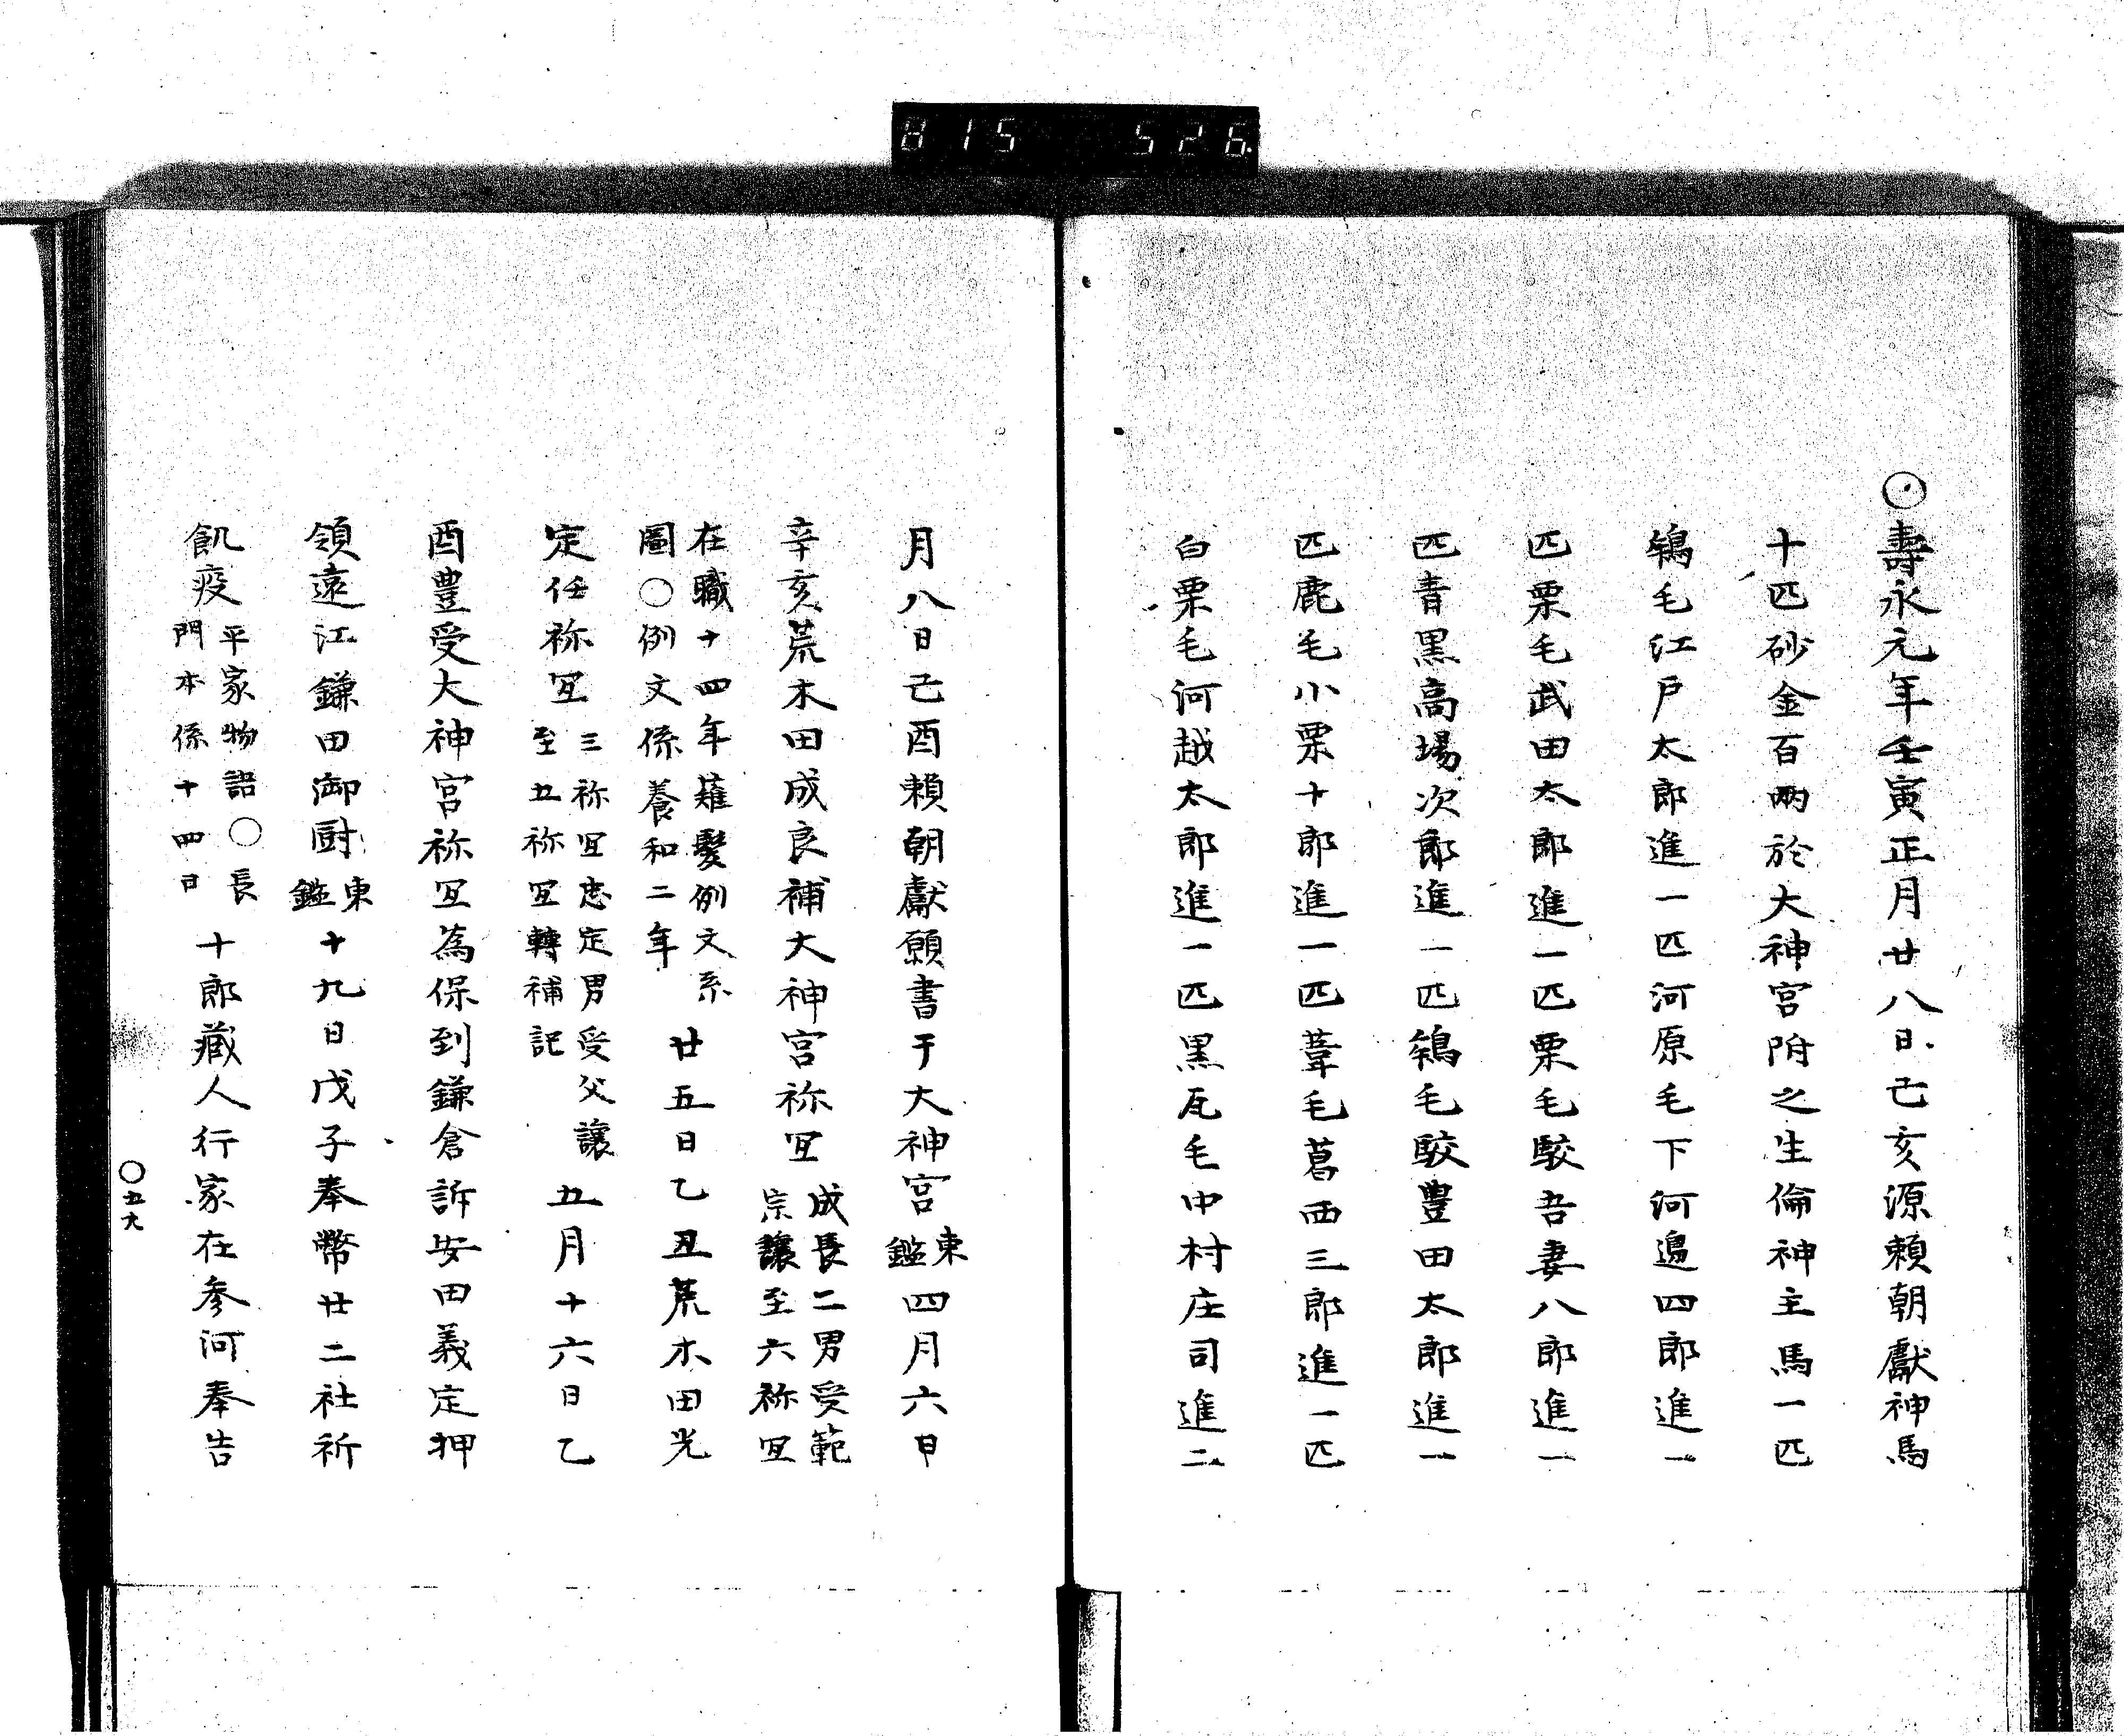 815 526
〇壽永元年壬寅正月廿八日己亥源頼朝獻神馬
十匹砂金百兩於大神宮附之生倫神主馬一匹
鴾毛江戸太郎進一匹河原毛下河邊四郎進一
匹栗毛武田太郎進一匹栗毛駮吾妻八郎進一
匹青黒高場次郎進一匹鴾毛駮豊田太郎進一
匹鹿毛小栗十郎進一匹葦毛葛西三郎進一匹
白栗毛河越太郎進一匹黒瓦毛中村庄司進二
月八日己酉頼朝獻願書于大神宮東鑑四月六日
辛亥荒木田成良補大神宮祢冝成長二男受範宗讓至六祢冝
在職十四年薙髮例文系圖〇例文係養和二年廿五日乙丑荒木田光
定任祢冝三祢冝忠定男受父讓至五祢冝轉補記五月十六日乙
酉豊受大神宮祢冝為保到鎌倉訴安田義定押
領遠江鎌田御厨東鑑十九日戊子奉幣廿二社祈
飢疫平家物語〇長門本係十四日十郎藏人行家在参河奉告
〇五十九